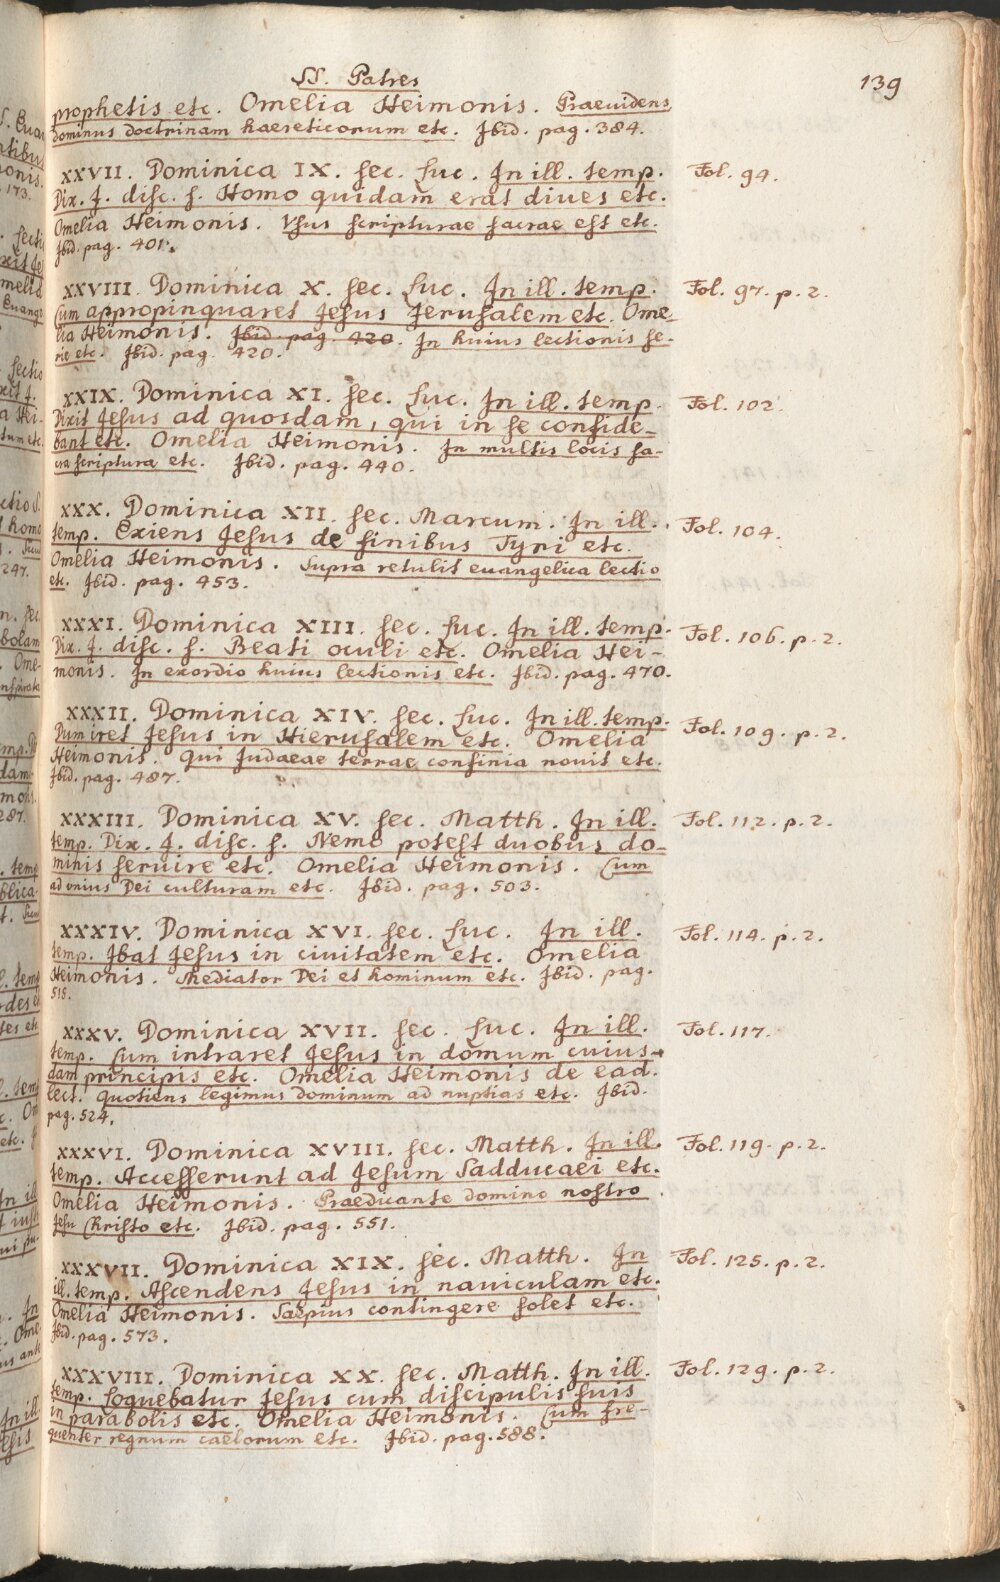 SS. Patres
139
prophetis etc. Omelia Heimonis. Praeuidens
dominus doctrinam haereticorum etc. Ibid. pag. 384.
XXVII. Dominica IX. sec. Luc. In ill. temp. Fol. 94.
Dix. J. disc. s. Homo quidam erat diues etc.
Omelia Heimonis. Vsus scripturae sacrae est etc.
Ibid. pag. 401.
XXVIII. Dominica X. sec. Luc. In ill. temp. Fol. 97. p. 2.
Cum appropinquaret Jesus Jerusalem etc. Ome-
lia Heimonis. Ibid. pag. 420. In huius lectionis se-
rie etc. Ibid. pag. 420.
XXIX. Dominica XI. sec. Luc. In ill. temp. Fol. 102.
Dixit Jesus ad quosdam, qui in se confide-
bant etc. Omelia Heimonis. In multis locis sa-
cra scriptura etc. Ibid. pag. 440.
XXX. Dominica XII. sec. Marcum. In ill. Fol. 104.
temp. Exiens Jesus de finibus Tyri etc.
Omelia Heimonis. Supra retulit euangelica lectio
etc. Ibid. pag. 453.
XXXI. Dominica XIII. sec. Luc. In ill. temp. Fol. 106. p. 2.
Dix. J. disc. s. Beati oculi etc. Omelia Hei-
monis. In exordio huius lectionis etc. Ibid. pag. 470.
XXXII. Dominica XIV. sec. Luc. In ill. temp. Fol. 109. p. 2.
Dum iret Jesus in Hierusalem etc. Omelia
Heimonis. Qui Judaeae terrae confinia nouit etc.
Ibid. pag. 487.
XXXIII. Dominica XV. sec. Matth. In ill. Fol. 112. p. 2.
temp. Dix. J. disc. s. Nemo potest duobus do-
minis seruire etc. Omelia Heimonis. Cum
ad vnius Dei culturam etc. Ibid. pag. 503.
XXXIV. Dominica XVI. sec. Luc. In ill. Fol. 114. p. 2.
temp. Ibat Jesus in ciuitatem etc. Omelia
Heimonis. Mediator Dei et hominum etc. Ibid. pag.
515.
XXXV. Dominica XVII. sec. Luc. In ill. Fol. 117.
temp. Cum intraret Jesus in domum cuius-
dam principis etc. Omelia Heimonis de ead.
lect. Quotiens legimus dominum ad nuptias etc. Ibid.
pag. 524.
XXXVI. Dominica XVIII. sec. Matth. In ill. Fol. 119. p. 2.
temp. Accesserunt ad Jesum Sadducaei etc.
Omelia Heimonis. Praedicante domino nostro
Jesu Christo etc. Ibid. pag. 551.
XXXVII. Dominica XIX. sec. Matth. In Fol. 125. p. 2.
ill. temp. Ascendens Jesus in nauiculam etc.
Omelia Heimonis. Saepius contingere solet etc.
Ibid. pag. 573.
XXXVIII. Dominica XX. sec. Matth. In ill. Fol. 129. p. 2.
temp. Loquebatur Jesus cum discipulis suis
in parabolis etc. Omelia Heimonis. Cum fre-
quenter regnum caelorum etc. Ibid. pag. 588.